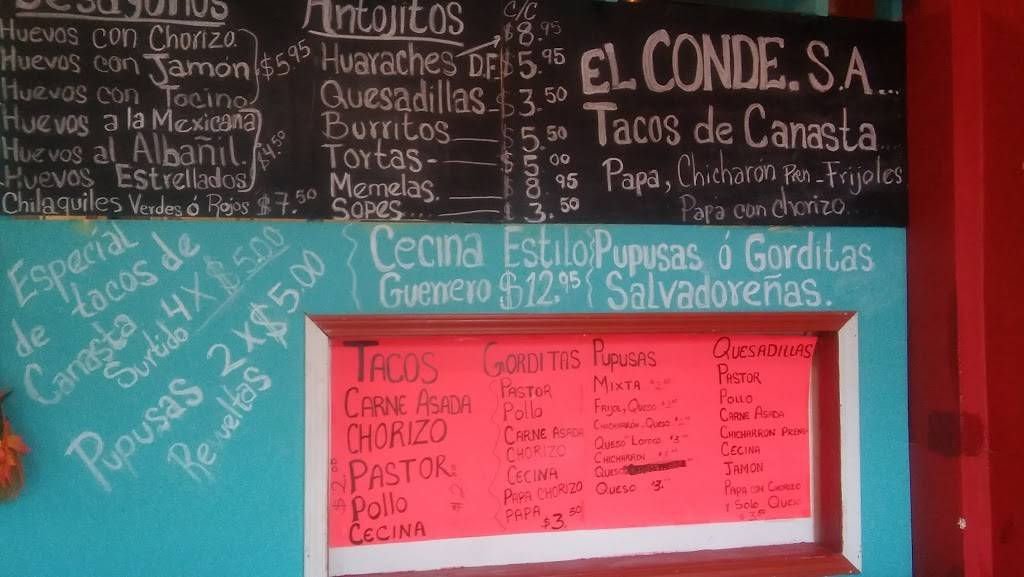 Desayunos
Huevos con Chorizo
Huevos con Jamón $5.95
Huevos con Tocino
Huevos a la Mexicana
Huevos al Albañil. $4.50
Huevos Estrellados
Chilaquiles Verdes ó Rojos $7.50
Antojitos
c/c
$8.95
Huaraches D.F. $5.95
Quesadillas $3.50
Burritos 5.50
Tortas 5.00
Memelas. 8.95
Sopes 3.50
EL CONDE. S.A...
Tacos de Canasta....
Papa, Chicharón Pren-Frijoles
Papa con chorizo..
Especial
de tacos de
Canasta
Surtido 4X$5.00
Pupusas 2X$5.00
Revueltas
Cecina Estilo
Guerrero $12.95
Pupusas ó Gorditas
Salvadoreñas.
TACOS
CARNE ASADA
CHORIZO
PASTOR
Pollo
CECINA
$2.00
GORDITAS
PASTOR
Pollo
CARNE ASADA
CHORIZO
CECINA
PAPA CHORIZO
PAPA
$3.50
PUPUSAS
MIXTA
FRIJOL, QUESO
CHICHARRÓN, QUESO
QUESO LOROCO $3.
CHICHARRON
QUESO
QUESO $3.
QUESADILLAS
PASTOR
POLLO
CARNE ASADA
CHICHARRON PRENS.
CECINA
JAMON
PAPA CON CHORIZO
Y SOLO QUESO